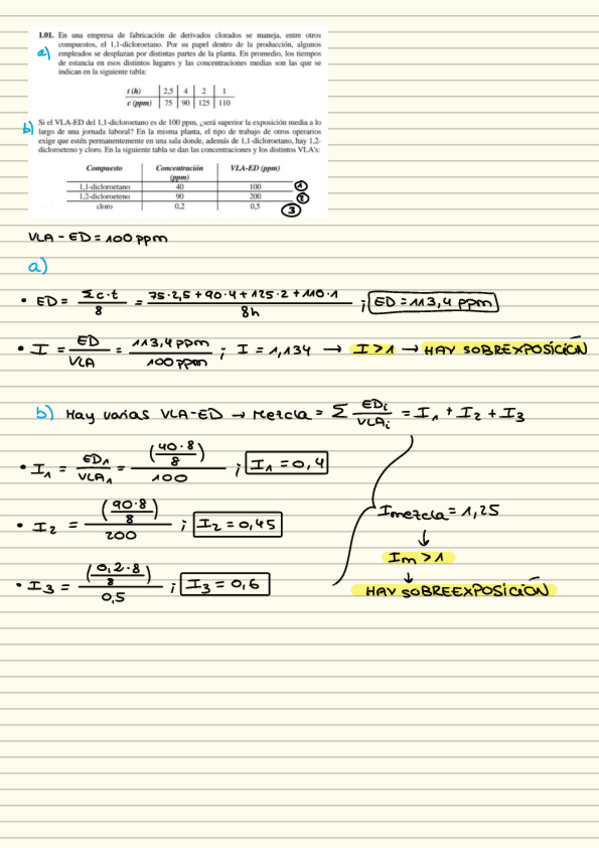 1.01. En una empresa de fabricación de derivados clorados se maneja, entre otros
compuestos, el 1,1-dicloroetano. Por su papel dentro de la producción, algunos
a) empleados se desplazan por distintas partes de la planta. En promedio, los tiempos
de estancia en esos distintos lugares y las concentraciones medias son las que se
indican en la siguiente tabla:
t (h) 2,5 4 2 1
c (ppm) 75 90 125 110
b) Si el VLA-ED del 1,1-dicloroetano es de 100 ppm, ¿será superior la exposición media a lo
largo de una jornada laboral? En la misma planta, el tipo de trabajo de otros operarios
exige que estén permanentemente en una sala donde, además de 1,1-dicloroetano, hay 1,2-
dicloroeteno y cloro. En la siguiente tabla se dan las concentraciones y los distintos VLA's:
Compuesto Concentración (ppm) VLA-ED (ppm)
1,1-dicloroetano 40 100 ①
1,2-dicloroeteno 90 200 ②
cloro 0,2 0,5 ③
VLA - ED = 100 ppm
a)
• ED = Σc·t / 8 = 75·2,5 + 90·4 + 125·2 + 110·1 / 8h ; ED = 113,4 ppm
• I = ED / VLA = 113,4 ppm / 100 ppm ; I = 1,134 → I > 1 → HAY SOBREXPOSICIÓN
b) Hay varias VLA-ED → Mezcla = Σ EDi / VLAi = I1 + I2 + I3
• I1 = ED1 / VLA1 = (40·8 / 8) / 100 ; I1 = 0,4
• I2 = (90·8 / 8) / 200 ; I2 = 0,45
• I3 = (0,2·8 / 8) / 0,5 ; I3 = 0,6
Imezcla = 1,25
↓
Im > 1
↓
HAY SOBREEXPOSICIÓN